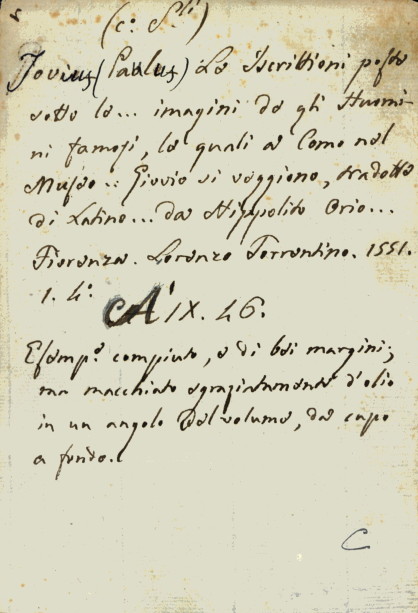 (c. S.ti)
Jovius (Paulus) Le Iscrittioni poste
sotto le... imagini de gli Huomi-
ni famosi, le quali a Como nel
Museo... Giovio si veggiono, tradotte
di Latino... da Hippolito Orio...
Fiorenza. Lorenzo Torrentino. 1551.
1. 4.º
CA IX. 46.
Esemp.º compiuto, e di bei margini;
ma macchiato sgraziatamente d'olio
in un angolo del volume, da capo
a fondo.
C